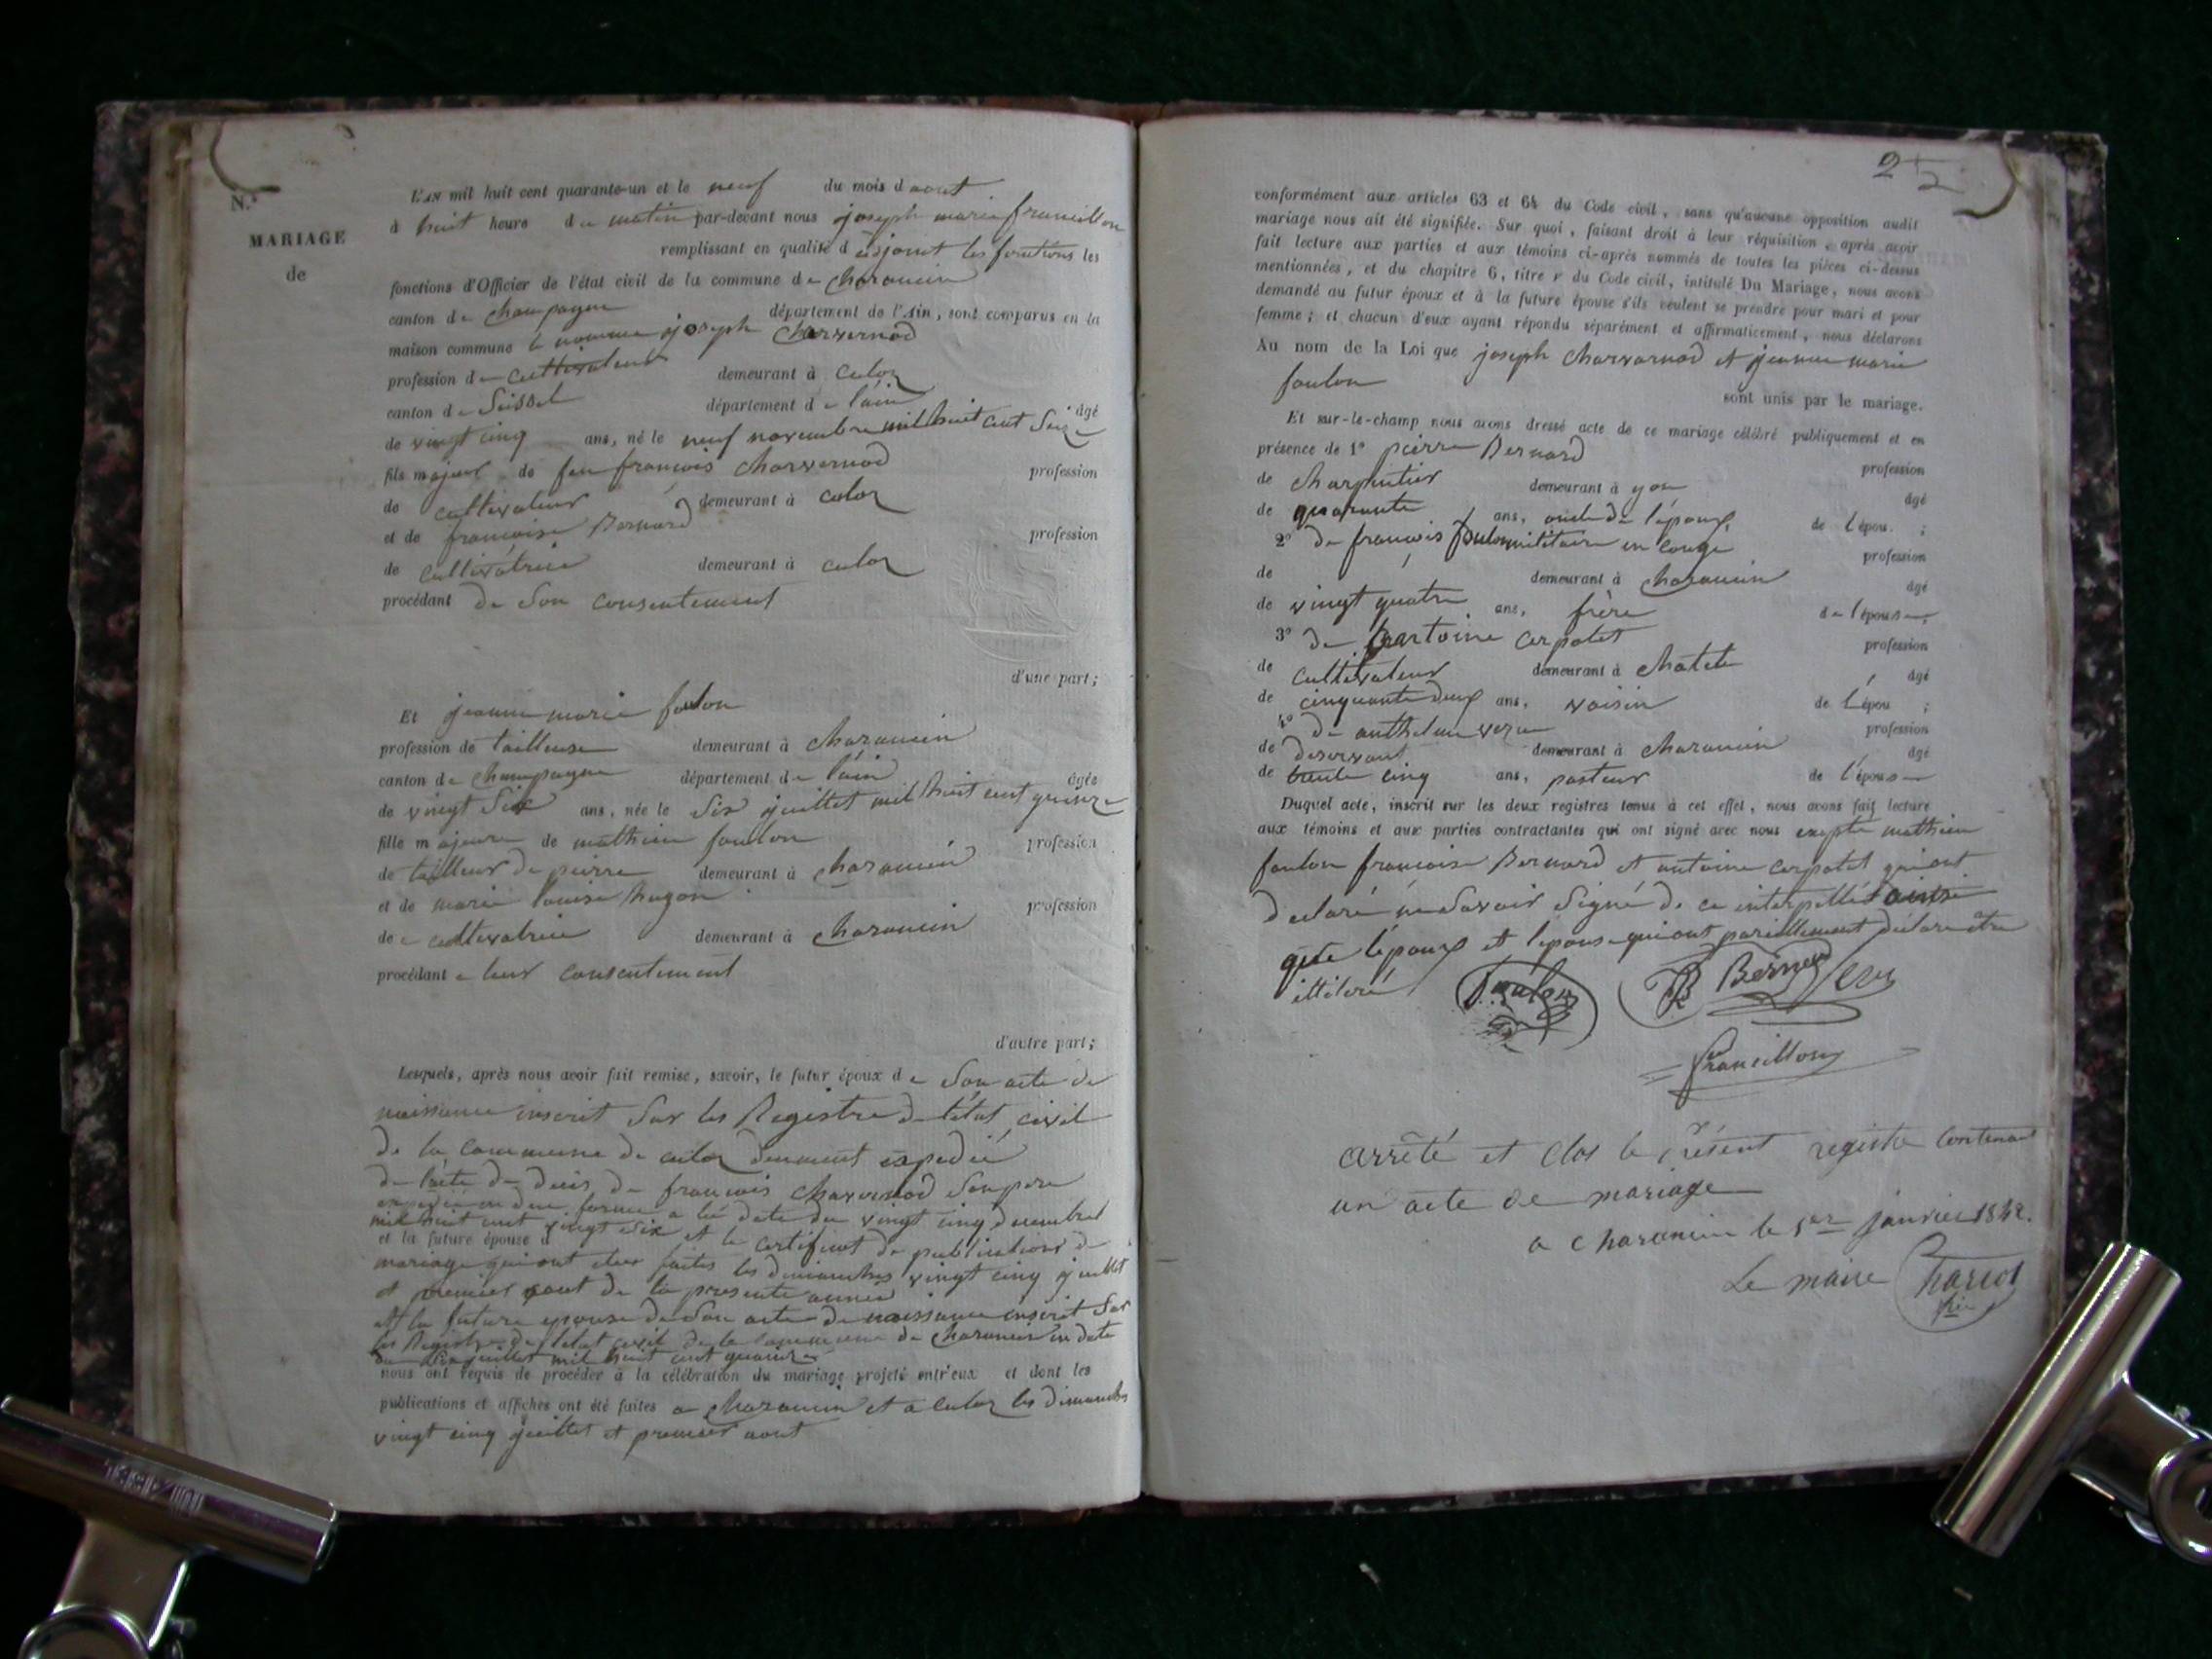 N.°
MARIAGE
de
L'AN mil huit cent quarante-un et le neuf du mois d aout
à huit heure du matin par-devant nous joseph marie francillon
remplissant en qualité d adjoint les fonctions les
fonctions d'Officier de l'état civil de la commune de Charancin
canton de Champagne département de l'Ain, sont comparus en la
maison commune le nomme joseph Charvernod
profession de cultivateur demeurant à culoz
canton de Seissel département de l'ain âgé
de vingt cinq ans, né le neuf novembre mil huit cent Seize
fils majeur de feu françois Charvernod profession
de cultivateur demeurant à culoz
et de françoise Bernard profession
de cultivatrice demeurant à culoz
procédant de Son consentement
d'une part;
Et jeanne marie foulon
profession de tailleuse demeurant à Charancin
canton de Champagne département de l'ain âgés
de vingt Six ans, née le Six juillet mil huit cent quinze
fille majeure de mathieu foulon profession
de tailleur de pierre demeurant à Charancin
et de marie louise hugon profession
de cultivatrice demeurant à Charancin
procédant e leur consentement
d'autre part;
Lesquels, après nous avoir fait remise, savoir, le futur époux de Son acte de
naissance inscrit Sur les Registre de l'état civil
de la commune de culoz dument expedié
de l'acte de décis de françois Charvernod Son pere
expediée en due forme a la date du vingt cinq decembre
mil huit cent vingt Six et le certificat de publications de
et la future épouse d
mariage qui ont etes faites les dimanches vingt cinq juillet
et premier aout de la presente année
et la future epouse de Son acte de naissance inscrit Sur
les Registre de l'etat civil de la commune de Charancin en date
du Six juillet mil huit cent quinze
nous ont requis de procéder à la célébration du mariage projeté entr'eux et dont les
publications et affiches ont été faites a Charancin et a culoz les dimanches
vingt cinq juillet et premier aout
conformément aux articles 63 et 64 du Code civil, sans qu'aucune opposition audit
mariage nous ait été signifiée. Sur quoi, faisant droit à leur réquisition, après avoir
fait lecture aux parties et aux témoins ci-après nommés de toutes les pièces ci-dessus
mentionnées, et du chapitre 6, titre v du Code civil, intitulé Du Mariage, nous avons
demandé au futur époux et à la future épouse s'ils veulent se prendre pour mari et pour
femme; et chacun d'eux ayant répondu séparément et affirmativement, nous déclarons
Au nom de la Loi que joseph Charvarnod et jeanne marie
foulon
sont unis par le mariage.
Et sur-le-champ nous avons dressé acte de ce mariage célébré publiquement et en
présence de 1° pierre Bernard profession
de Charpentier demeurant à yon âgé
de quarante ans, oncle de l'époux de l'épou. ;
2° de françois foulon militaire en conge profession
de demeurant à Charancin âgé
de vingt quatre ans, frère de l'épouse;
3° de antoine carpatet profession
de cultivateur demeurant à Chatel âgé
de cinquante deux ans, voisin de l'épou ;
4° de anthelme profession
de deservant demeurant à Charancin âgé
de trente cinq ans, pasteur de l'épouse
Duquel acte, inscrit sur les deux registres tenus à cet effet, nous avons fait lecture
aux témoins et aux parties contractantes qui ont signé avec nous exepté mathieu
foulon françoise Bernard et antoine carpatet qui ont
declaré ne Savoir Signé de ce interpellés ainsi
que l'époux et l'epouse qui ont pareillement déclare être
illiteré
foulon
Bernard
francillon
arrêté et clos le présent registre contenant
un acte de mariage
a Charancin le 1er janvier 1842.
Le maire Charcot